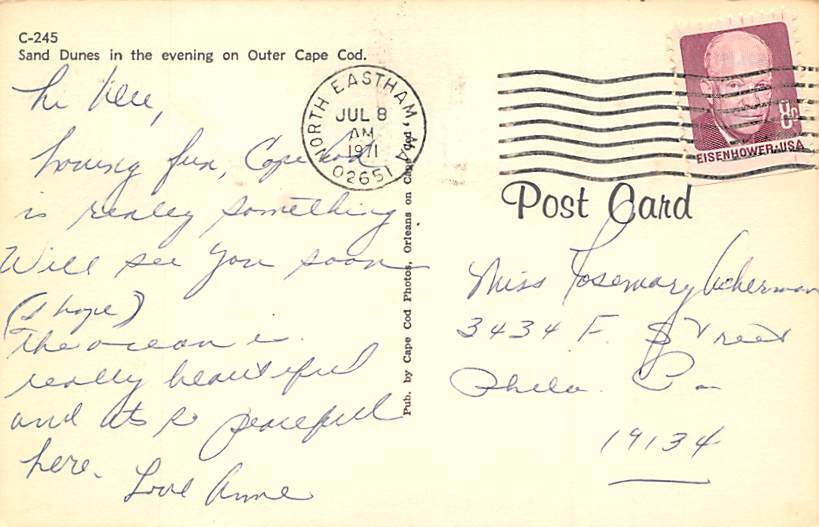 C-245
Sand Dunes in the evening on Outer Cape Cod.
Hi
having fun, Cape Cod
is really something
Will see you soon
(I hope)
The ocean is
really beautiful
and its so peaceful
here.
Love Anne
NORTH EASTHAM, MA
JUL 8
AM
1971
02651
Pub. by Cape Cod Photos, Orleans on Cape Cod.
8¢
EISENHOWER·USA
Post Card
Miss Rosemary Ackerman
3434 F. Street
Phila. Pa
19134